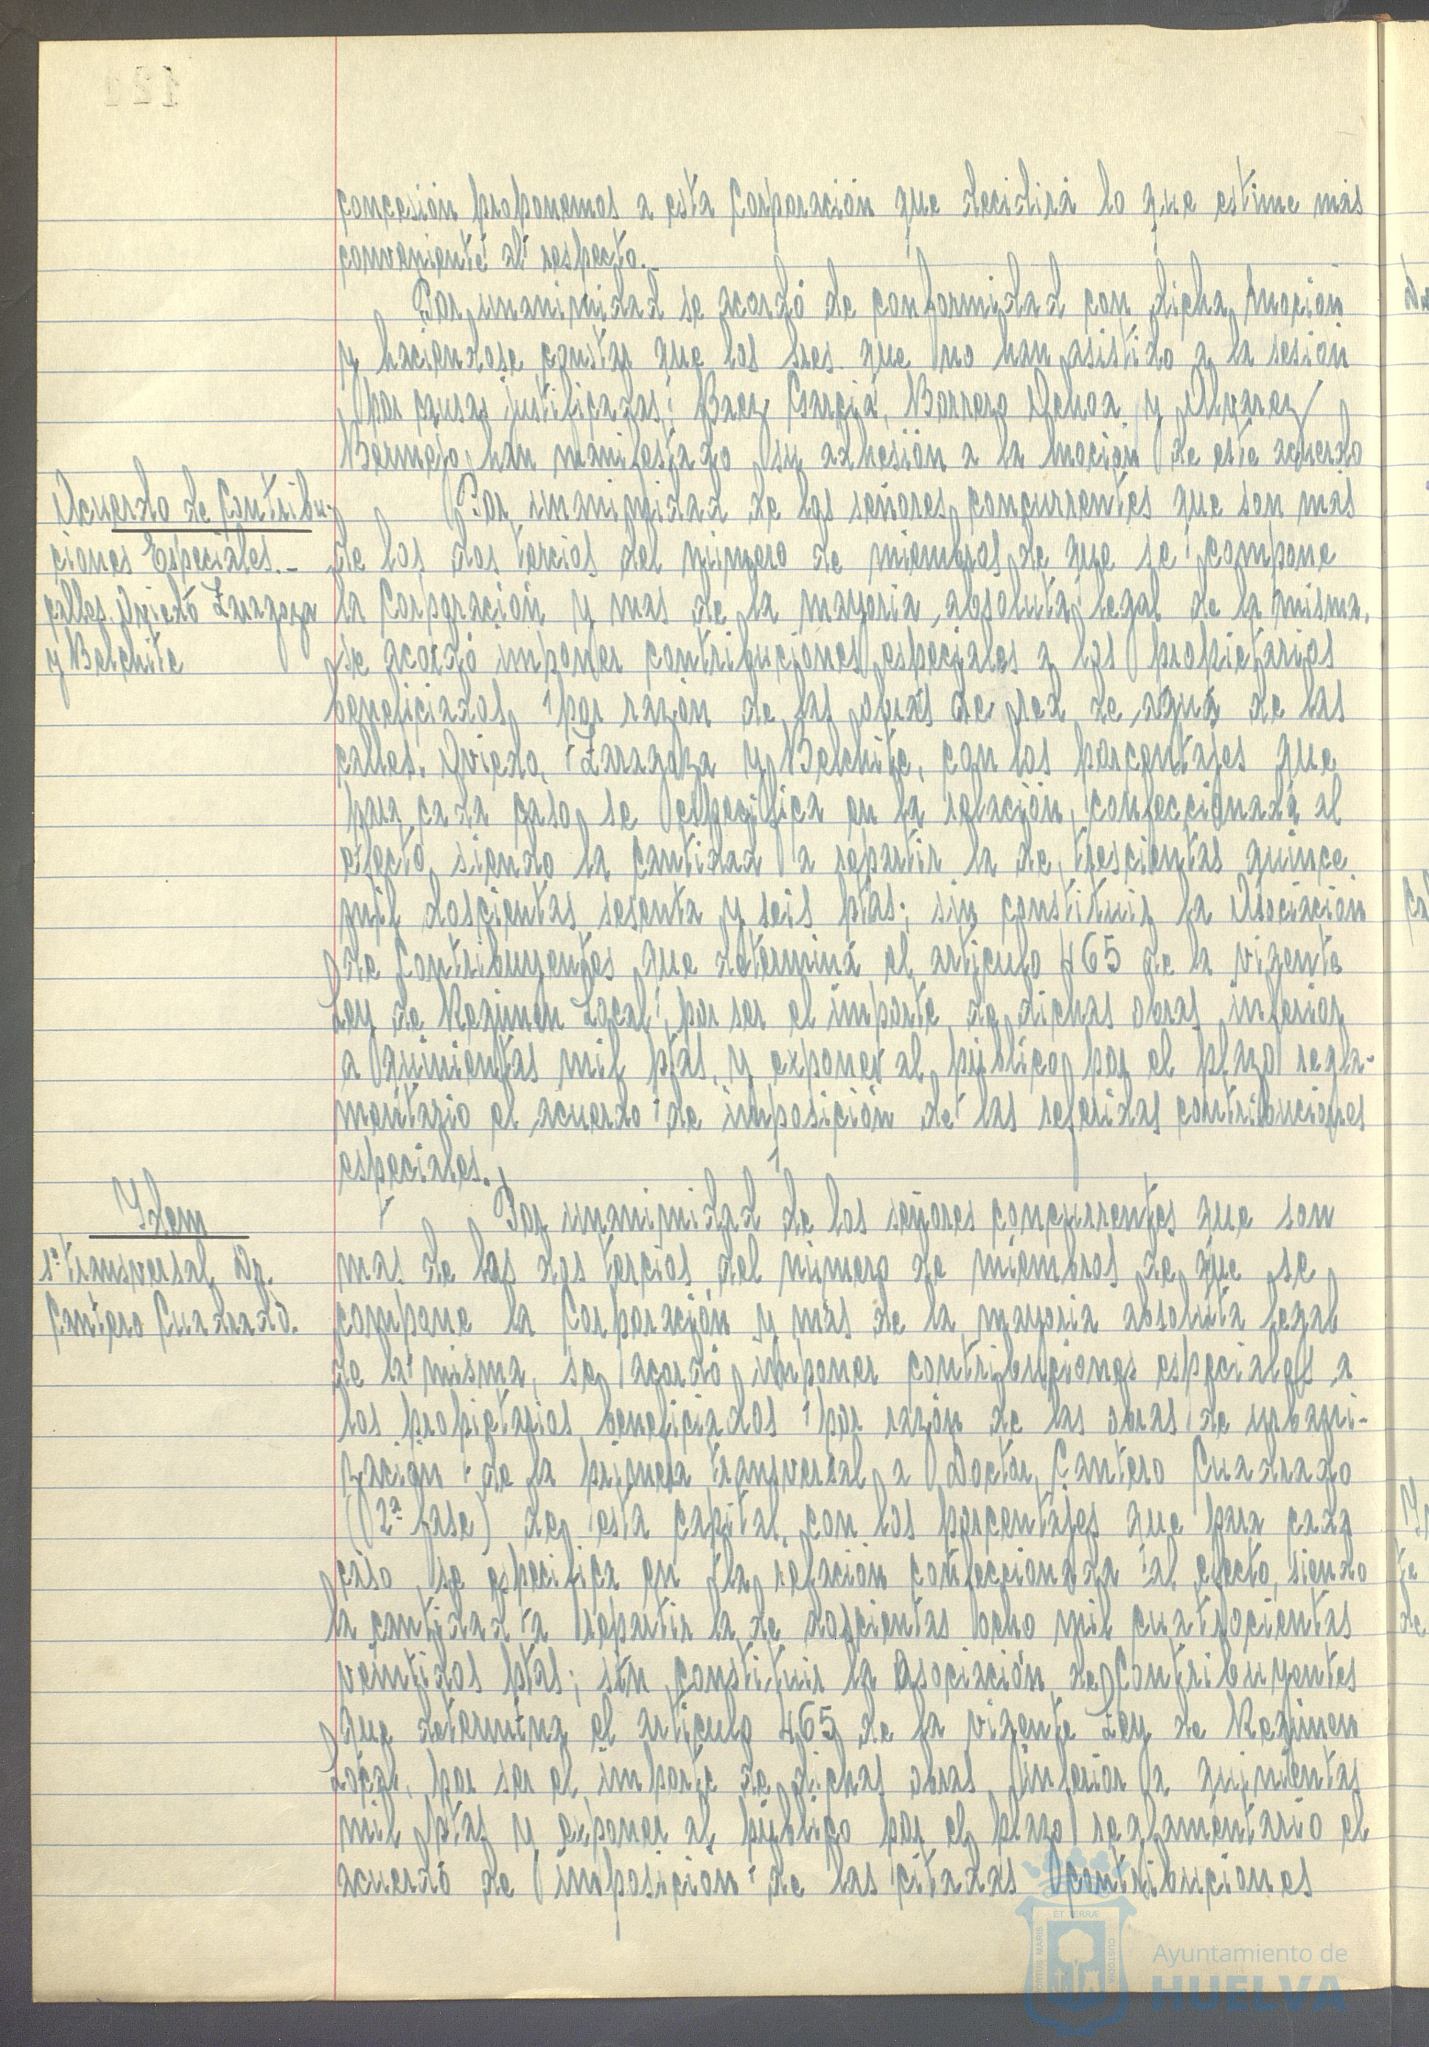 concesión proponemos a esta Corporación que decidirá lo que estime más
conveniente al respecto.-
Por unanimidad se acordó de conformidad con dicha moción
y haciendose constar que los Sres. que no han asistido a la sesion
por causas justificadas, Baez Garcia, Borrero Ochoa y Alvarez
Bermejo, han manifestado su adhesión a la moción de este acuerdo
Acuerdo de Contribu-
ciones Especiales.-
calles Oviedo Zaragoza
y Belchite
Por unanimidad de los señores concurrentes que son mas
de los dos tercios del número de miembros de que se compone
la Corporación y mas de la mayoria absoluta legal de la misma,
se acordó imponer contribuciones especiales a los propietarios
beneficiados por razón de las obras de red de agua de las
calles. Oviedo, Zaragoza y Belchite, con los porcentajes que
para cada caso se especifica en la relación confeccionada al
efecto, siendo la cantidad a repartir la de trescientas quince
mil doscientas sesenta y seis ptas; sin constituir la Asociación
de Contribuyentes que determina el articulo 465 de la vigente
Ley de Regimen Local, por ser el importe de dichas obras inferior
a quinientas mil ptas. y exponer al público por el plazo regla-
mentario el acuerdo de imposición de las referidas contribuciones
especiales.
Idem
1ª transversal Dr.
Cantero Cuadrado.
Por unanimidad de los señores concurrentes que son
mas de los dos tercios del número de miembros de que se
compone la Corporación y más de la mayoria absoluta legal
de la misma, se acordó imponer contribuciones especiales a
los propietarios beneficiados por razón de las obras de urbani-
zación de la primera transversal a Doctor Cantero Cuadrado
(2ª fase) de esta capital, con los porcentajes que para cada
caso se especifica en la relación confeccionada al efecto, siendo
la cantidad a repartir la de doscientas ocho mil cuatrocientas
veintidos ptas; sin constituir la Asociación de Contribuyentes
que determina el articulo 465 de la vigente Ley de Regimen
Local, por ser el importe de dichas obras inferior a quinientas
mil ptas y exponer al público por el plazo reglamentario el
acuerdo de imposición de las citadas contribuciones
Ayuntamiento de
HUELVA